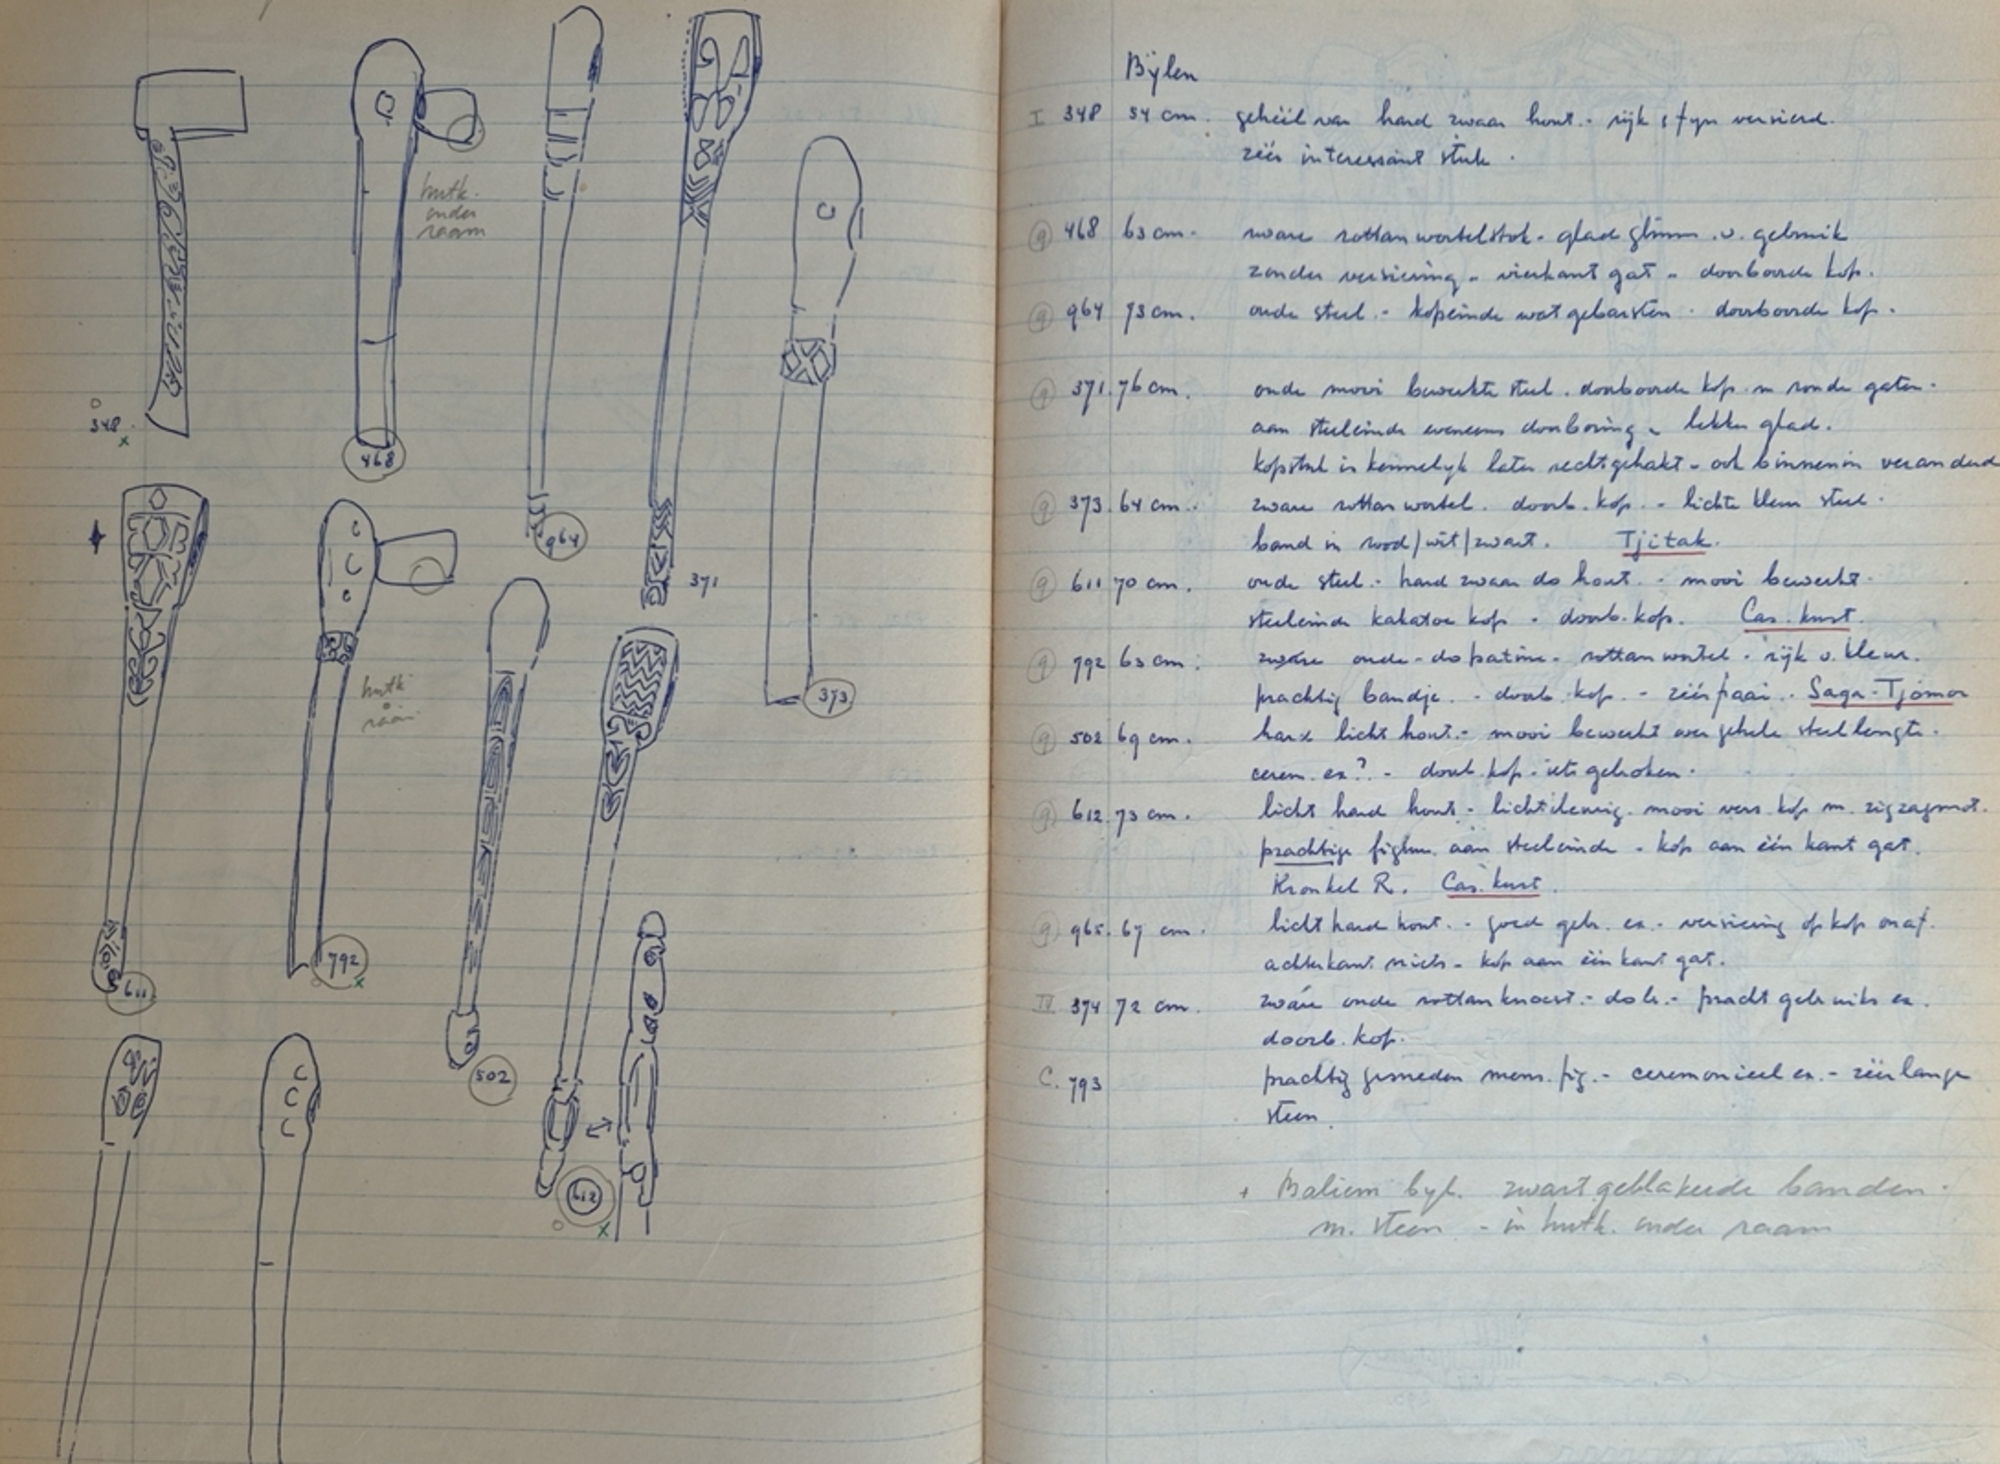 348
468
hutk.
onder
raam
964
371
373
611
792
hutk
502
612
Bijlen
I 348 54 cm. geheel van hard zwaar hout. - rijk & fijn versierd.
zéér interessant stuk.
9 468 63 cm. zware rottanwortelstok - glad glimm. v. gebruik
zonder versiering - vierkant gat - doorboorde kop.
9 964 73 cm. oude steel. - kopeinde wat gebarsten. doorboorde kop.
9 371. 76 cm. oude mooi bewerkte steel. doorboorde kop m ronde gaten.
aan steeleinde eveneens doorboring - lekker glad.
kopstuk is kennelijk later recht gehakt - ook binnenin veranderd
9 373. 64 cm. zware rottan wortel. doorb. kop. - lichte kleur steel.
band in rood/wit/zwart. Tjitak.
9 611 70 cm. oude steel. - hard zwaar do hout. - mooi bewerkt.
steeleinde kakatoe kop - doorb. kop. Cas. kust.
9 792 63 cm. zware oude - do patine - rottan wortel. rijk v. kleur.
prachtig bandje. - doorb. kop. - zéér fraai. Saga-Tjomor
9 502 69 cm. hard licht hout. - mooi bewerkt over gehele steellengte.
cerem. ex? - doorb. kop - iets gebroken.
9 612. 73 cm. licht hard hout - mooi vers. kop m. zigzagmot.
prachtige figuur aan steeleinde - kop aan één kant gat.
Kronkel R. Cas. kust.
9 965. 67 cm. licht hard hout. - goed gebr. ex. - versiering op kop onaf.
achterkant niets - kop aan één kant gat.
IV 374 72 cm. zware oude rottan knoest. - do br. - pracht gebruiks ex.
doorb. kop.
C. 793 prachtig gesneden mens. fig. - ceremonieel ex. - zéér lange
steen.
+ Baliem byl. zwart geblakerde banden.
m. steen - in hutk. onder raam